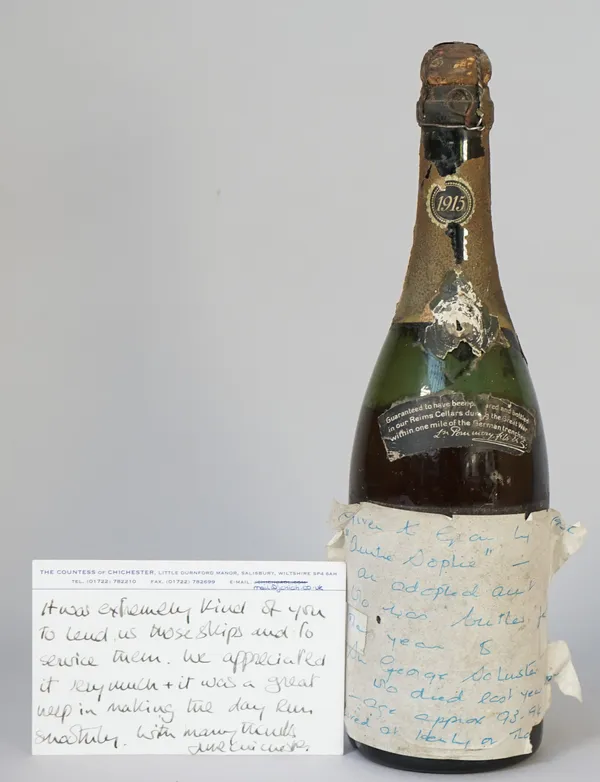 1915
Guaranteed to have been prepared and bottled
in our Reims Cellars during the Great War
within one mile of the German trenches
THE COUNTESS OF CHICHESTER, LITTLE DURNFORD MANOR, SALISBURY, WILTSHIRE SP4 6AH
TEL. (01722) 782210 FAX: (01722) 782699 E-MAIL:
It was extremely kind of you
to lend us those skips and to
service them. We appreciated
it very much + it was a great
help in making the day run
smoothly. With many thanks
June Chichester.
Given to Egan by
"Auntie Sophie" —
an adopted aunt
who was
year 8
George Schuster
who died last year
age approx 93-94